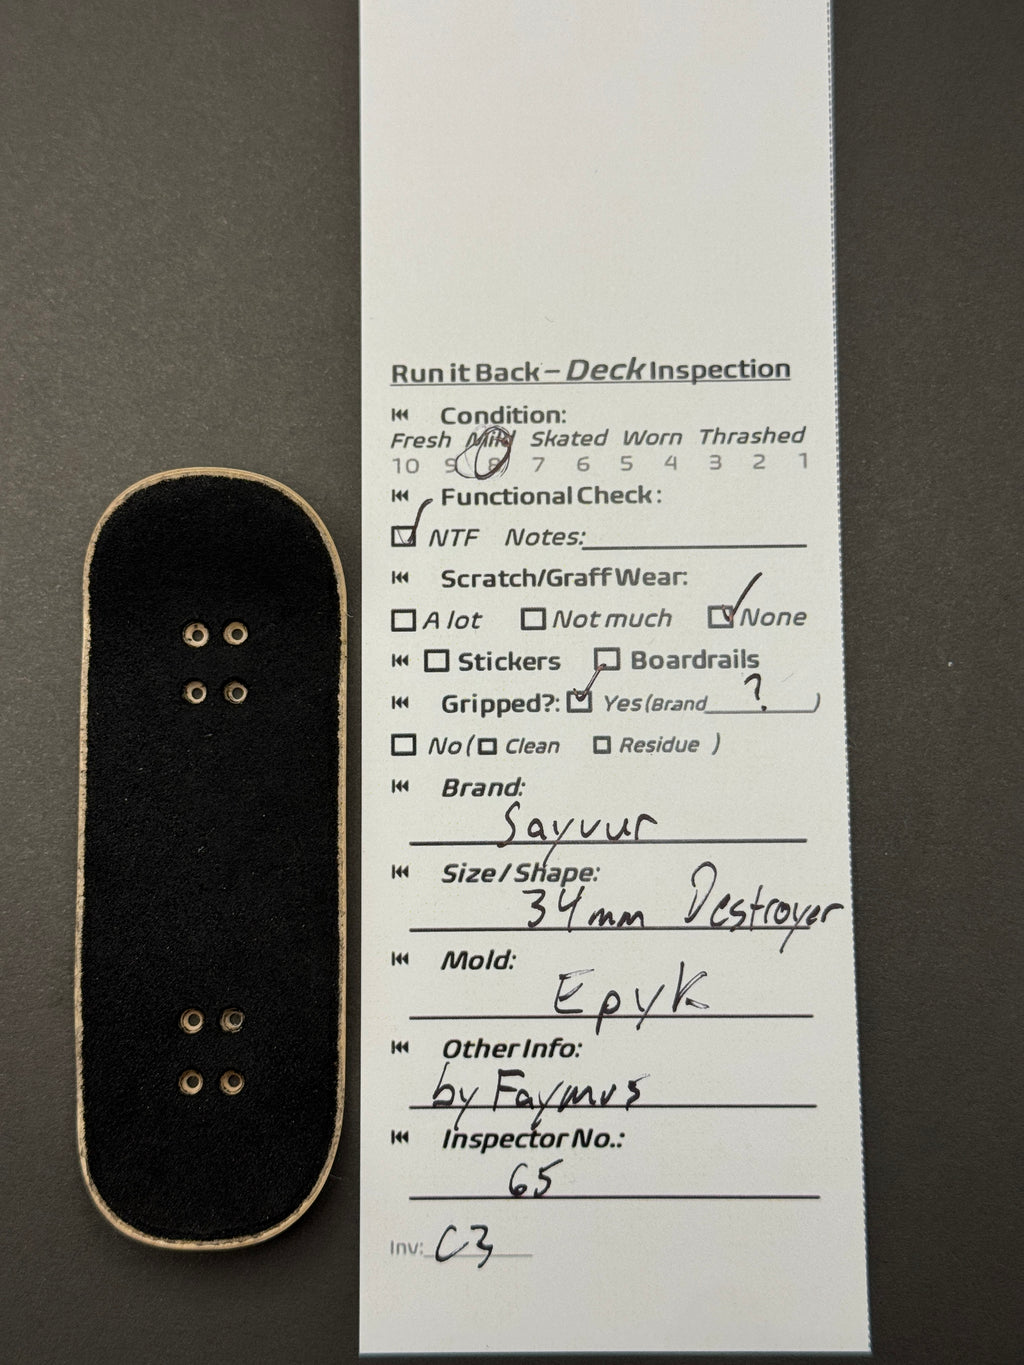 Run it Back – Deck Inspection
Condition:
Fresh Mild Skated Worn Thrashed
10 9 8 7 6 5 4 3 2 1
Functional Check:
NTF Notes:
Scratch/Graff Wear:
A lot Not much None
Stickers Boardrails
Gripped?: Yes (Brand ? )
No ( Clean Residue )
Brand:
Sayvur
Size / Shape:
34mm Destroyer
Mold:
Epyk
Other Info:
by Faymus
Inspector No.:
65
Inv: C3